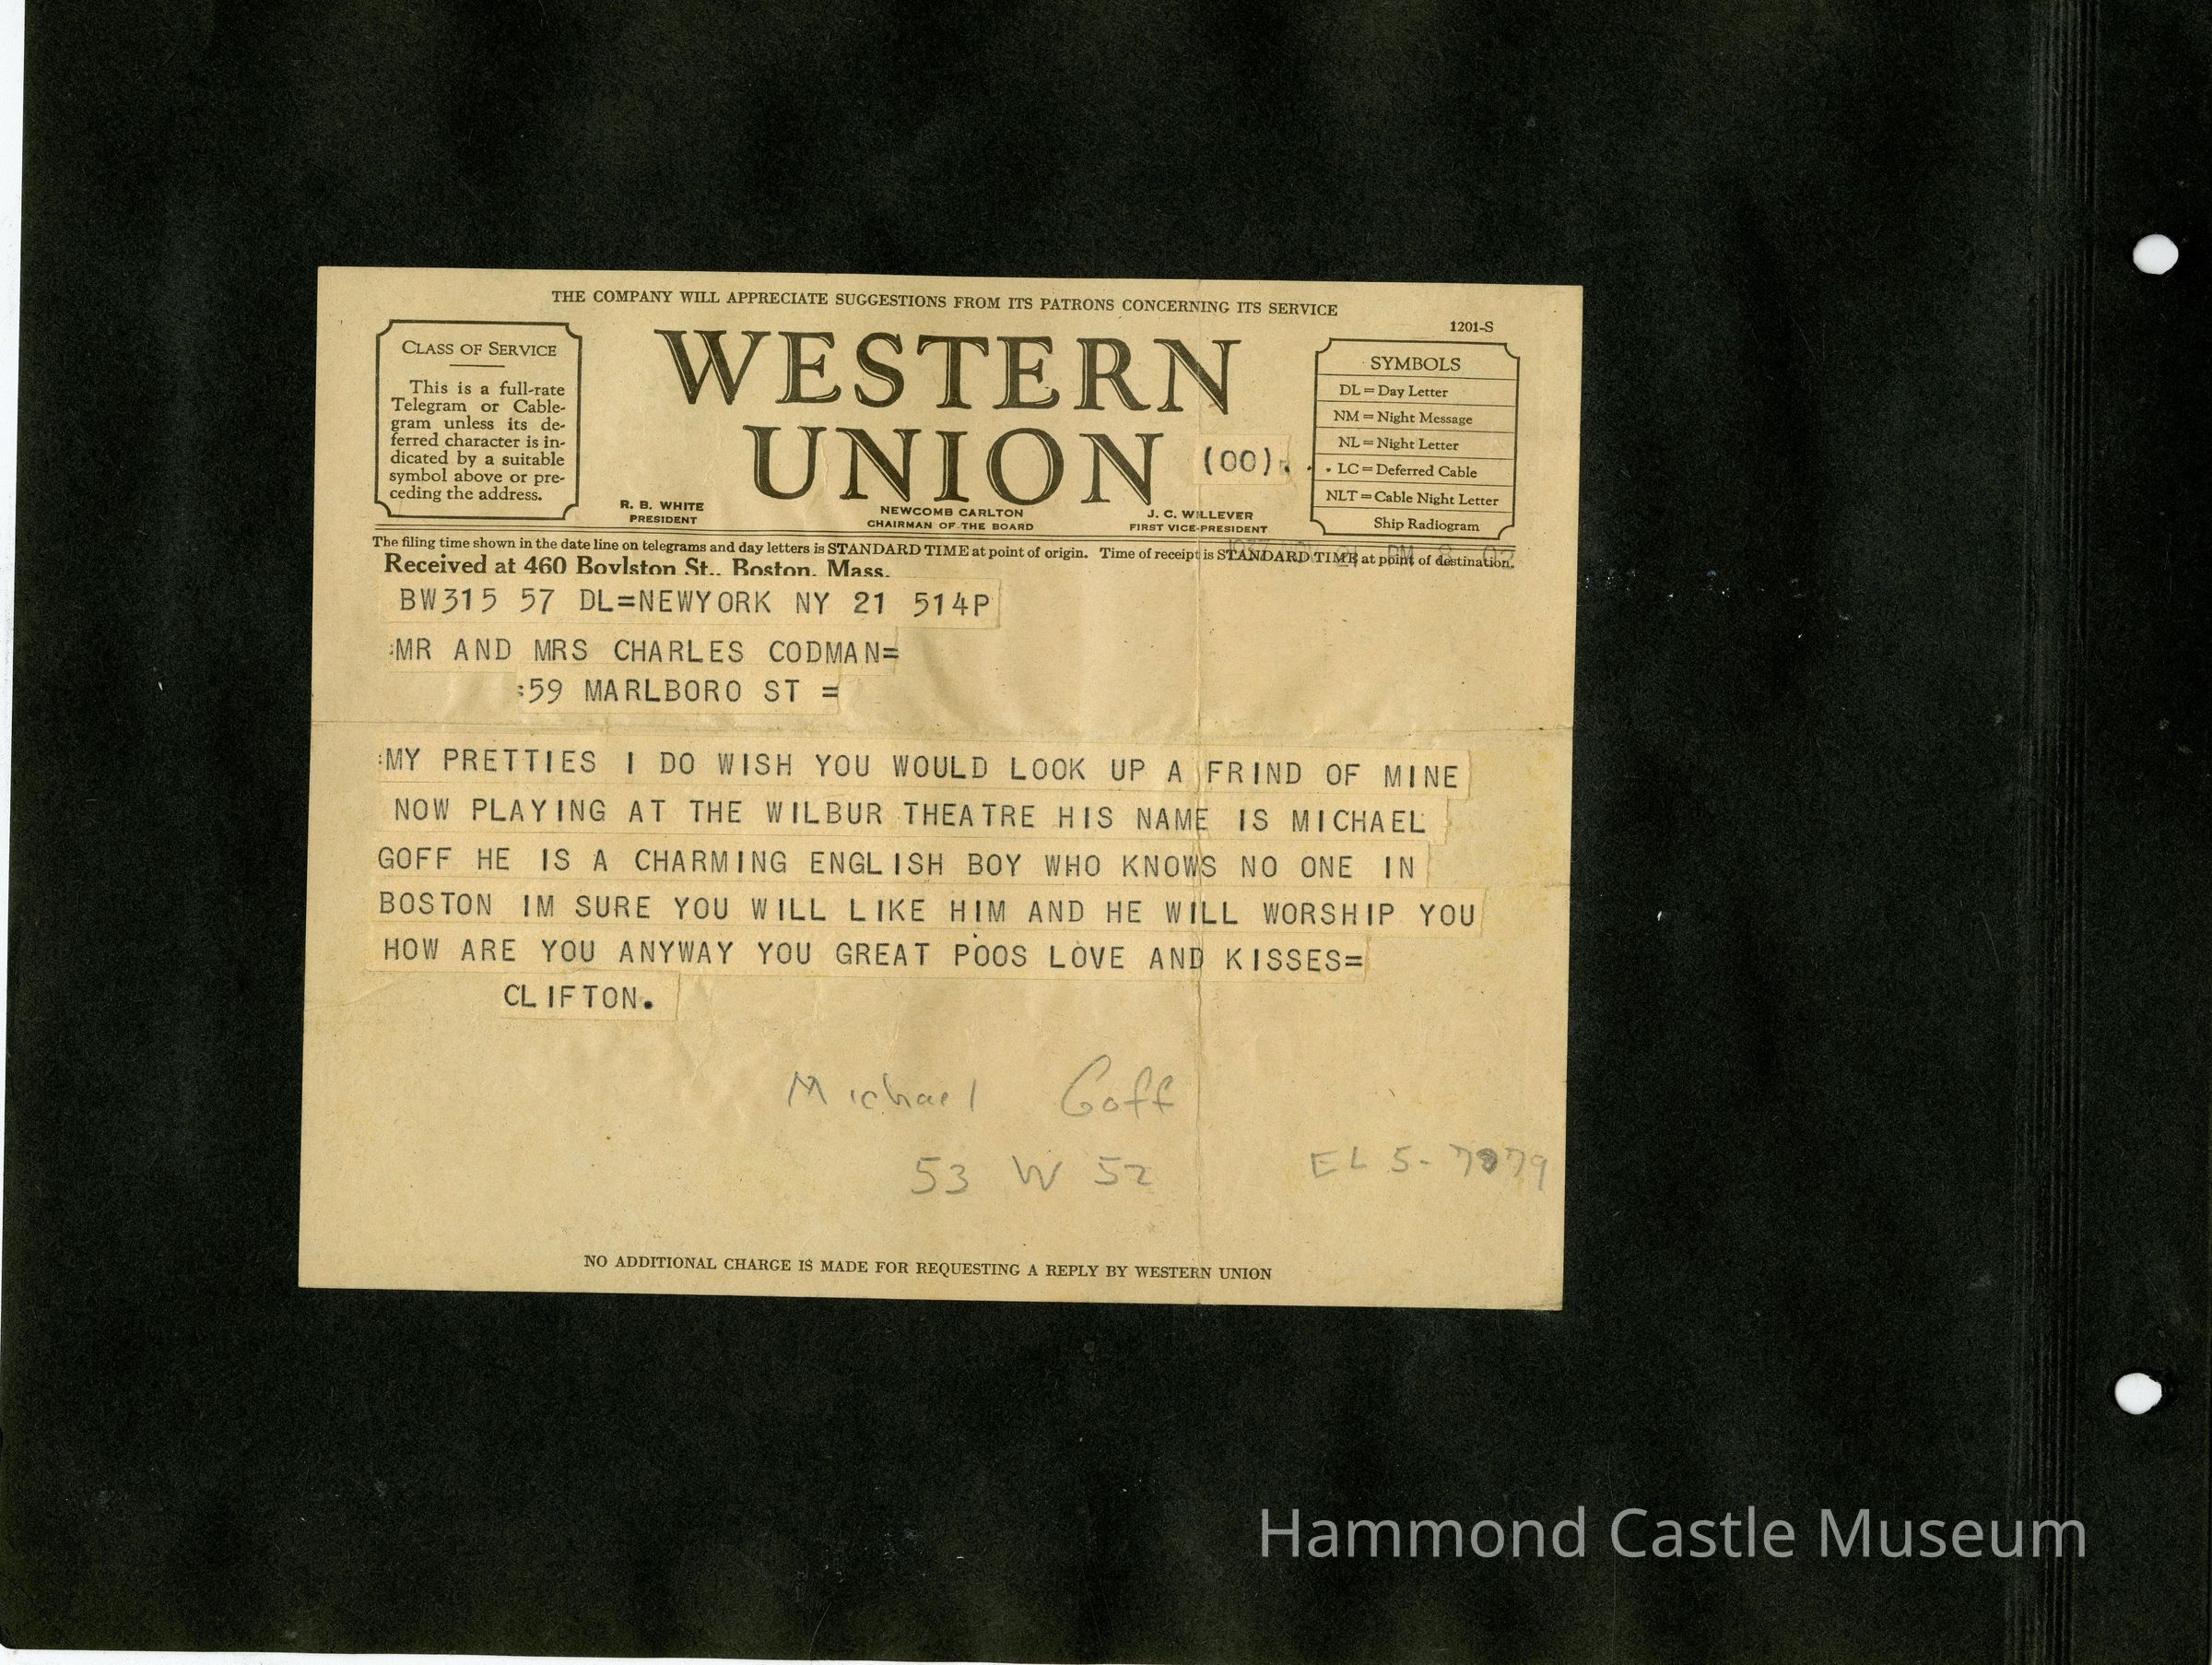 THE COMPANY WILL APPRECIATE SUGGESTIONS FROM ITS PATRONS CONCERNING ITS SERVICE
1201-S
CLASS OF SERVICE
This is a full-rate
Telegram or Cable-
gram unless its de-
ferred character is in-
dicated by a suitable
symbol above or pre-
ceding the address.
WESTERN
UNION
(00).
R. B. WHITE
PRESIDENT
NEWCOMB CARLTON
CHAIRMAN OF THE BOARD
J. C. WILLEVER
FIRST VICE-PRESIDENT
SYMBOLS
DL = Day Letter
NM = Night Message
NL = Night Letter
LC = Deferred Cable
NLT = Cable Night Letter
Ship Radiogram
The filing time shown in the date line on telegrams and day letters is STANDARD TIME at point of origin. Time of receipt is STANDARD TIME at point of destination.
Received at 460 Boylston St., Boston, Mass.
BW315 57 DL=NEWYORK NY 21 514P
:MR AND MRS CHARLES CODMAN=
:59 MARLBORO ST =
:MY PRETTIES I DO WISH YOU WOULD LOOK UP A FRIND OF MINE
NOW PLAYING AT THE WILBUR THEATRE HIS NAME IS MICHAEL
GOFF HE IS A CHARMING ENGLISH BOY WHO KNOWS NO ONE IN
BOSTON IM SURE YOU WILL LIKE HIM AND HE WILL WORSHIP YOU
HOW ARE YOU ANYWAY YOU GREAT POOS LOVE AND KISSES=
CLIFTON.
Michael Goff
53 W 52
EL 5-
NO ADDITIONAL CHARGE IS MADE FOR REQUESTING A REPLY BY WESTERN UNION
Hammond Castle Museum